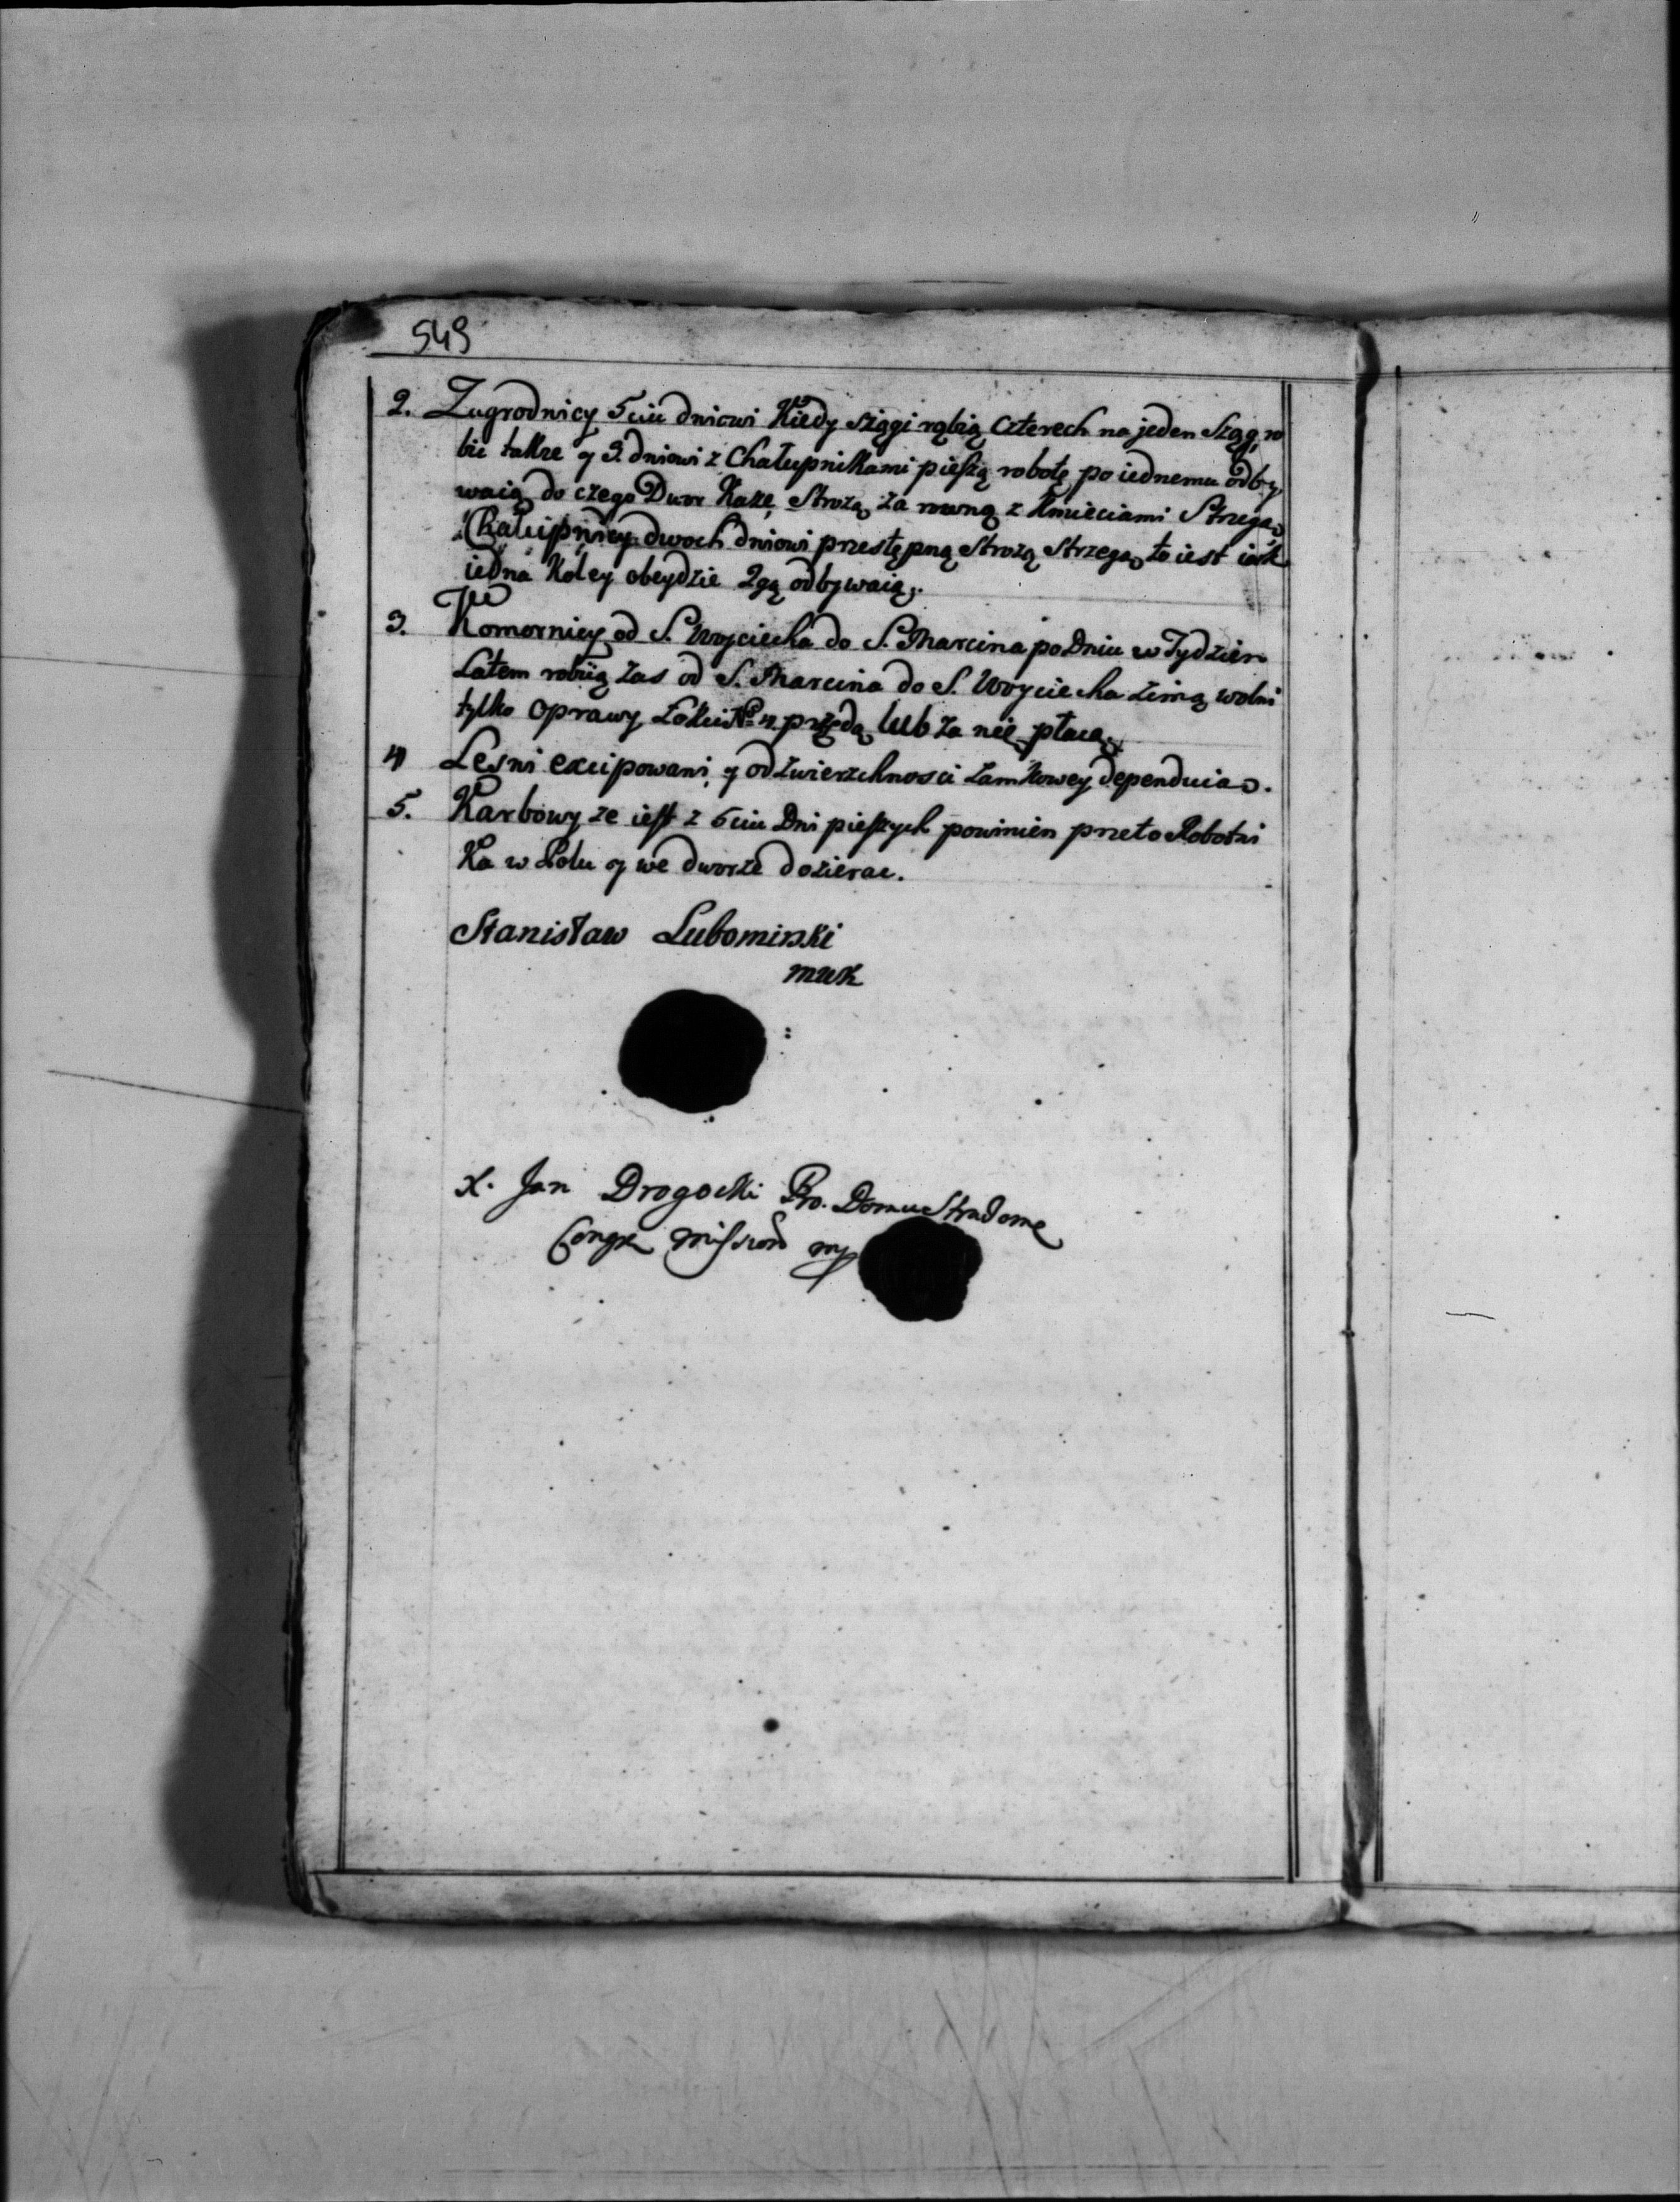 549
2. Zagrodnicy 5ciu dniowi Kiedy sziągi rąbią czterech na jeden Sząg, ro
bić także y 3. dniowi z Chałupnikami pieszą robotę po iednemu odby
waią do czego Dwor Każe, Strożą za rowną z Kmieciami Strzegą
Chałupnicy dwoch dniowi przestępną Strożą Strzegą to iest iak
iedna Koley obeydzie 2gą odbywaią.
3. Komornicy od S. Woyciecha do S. Marcina po Dniu w Tydzien
Latem robią zas od S. Marcina do S. Woyciecha zimą wolni
tylko Oprawy Łokci No 4. przędą lub za nię płacą.
4 Lesni excipowani y od zwierzchnosci zamkowey dependuią.
5. Karbowy ze iest z 5ciu Dni pieszych powinien przeto Robotni
Ka w Polu y we dworze dozierac.
Stanisław Lubomirski
mwk
X. Jan Drogocki Pro. Domu Stradome
Congr Mission mp